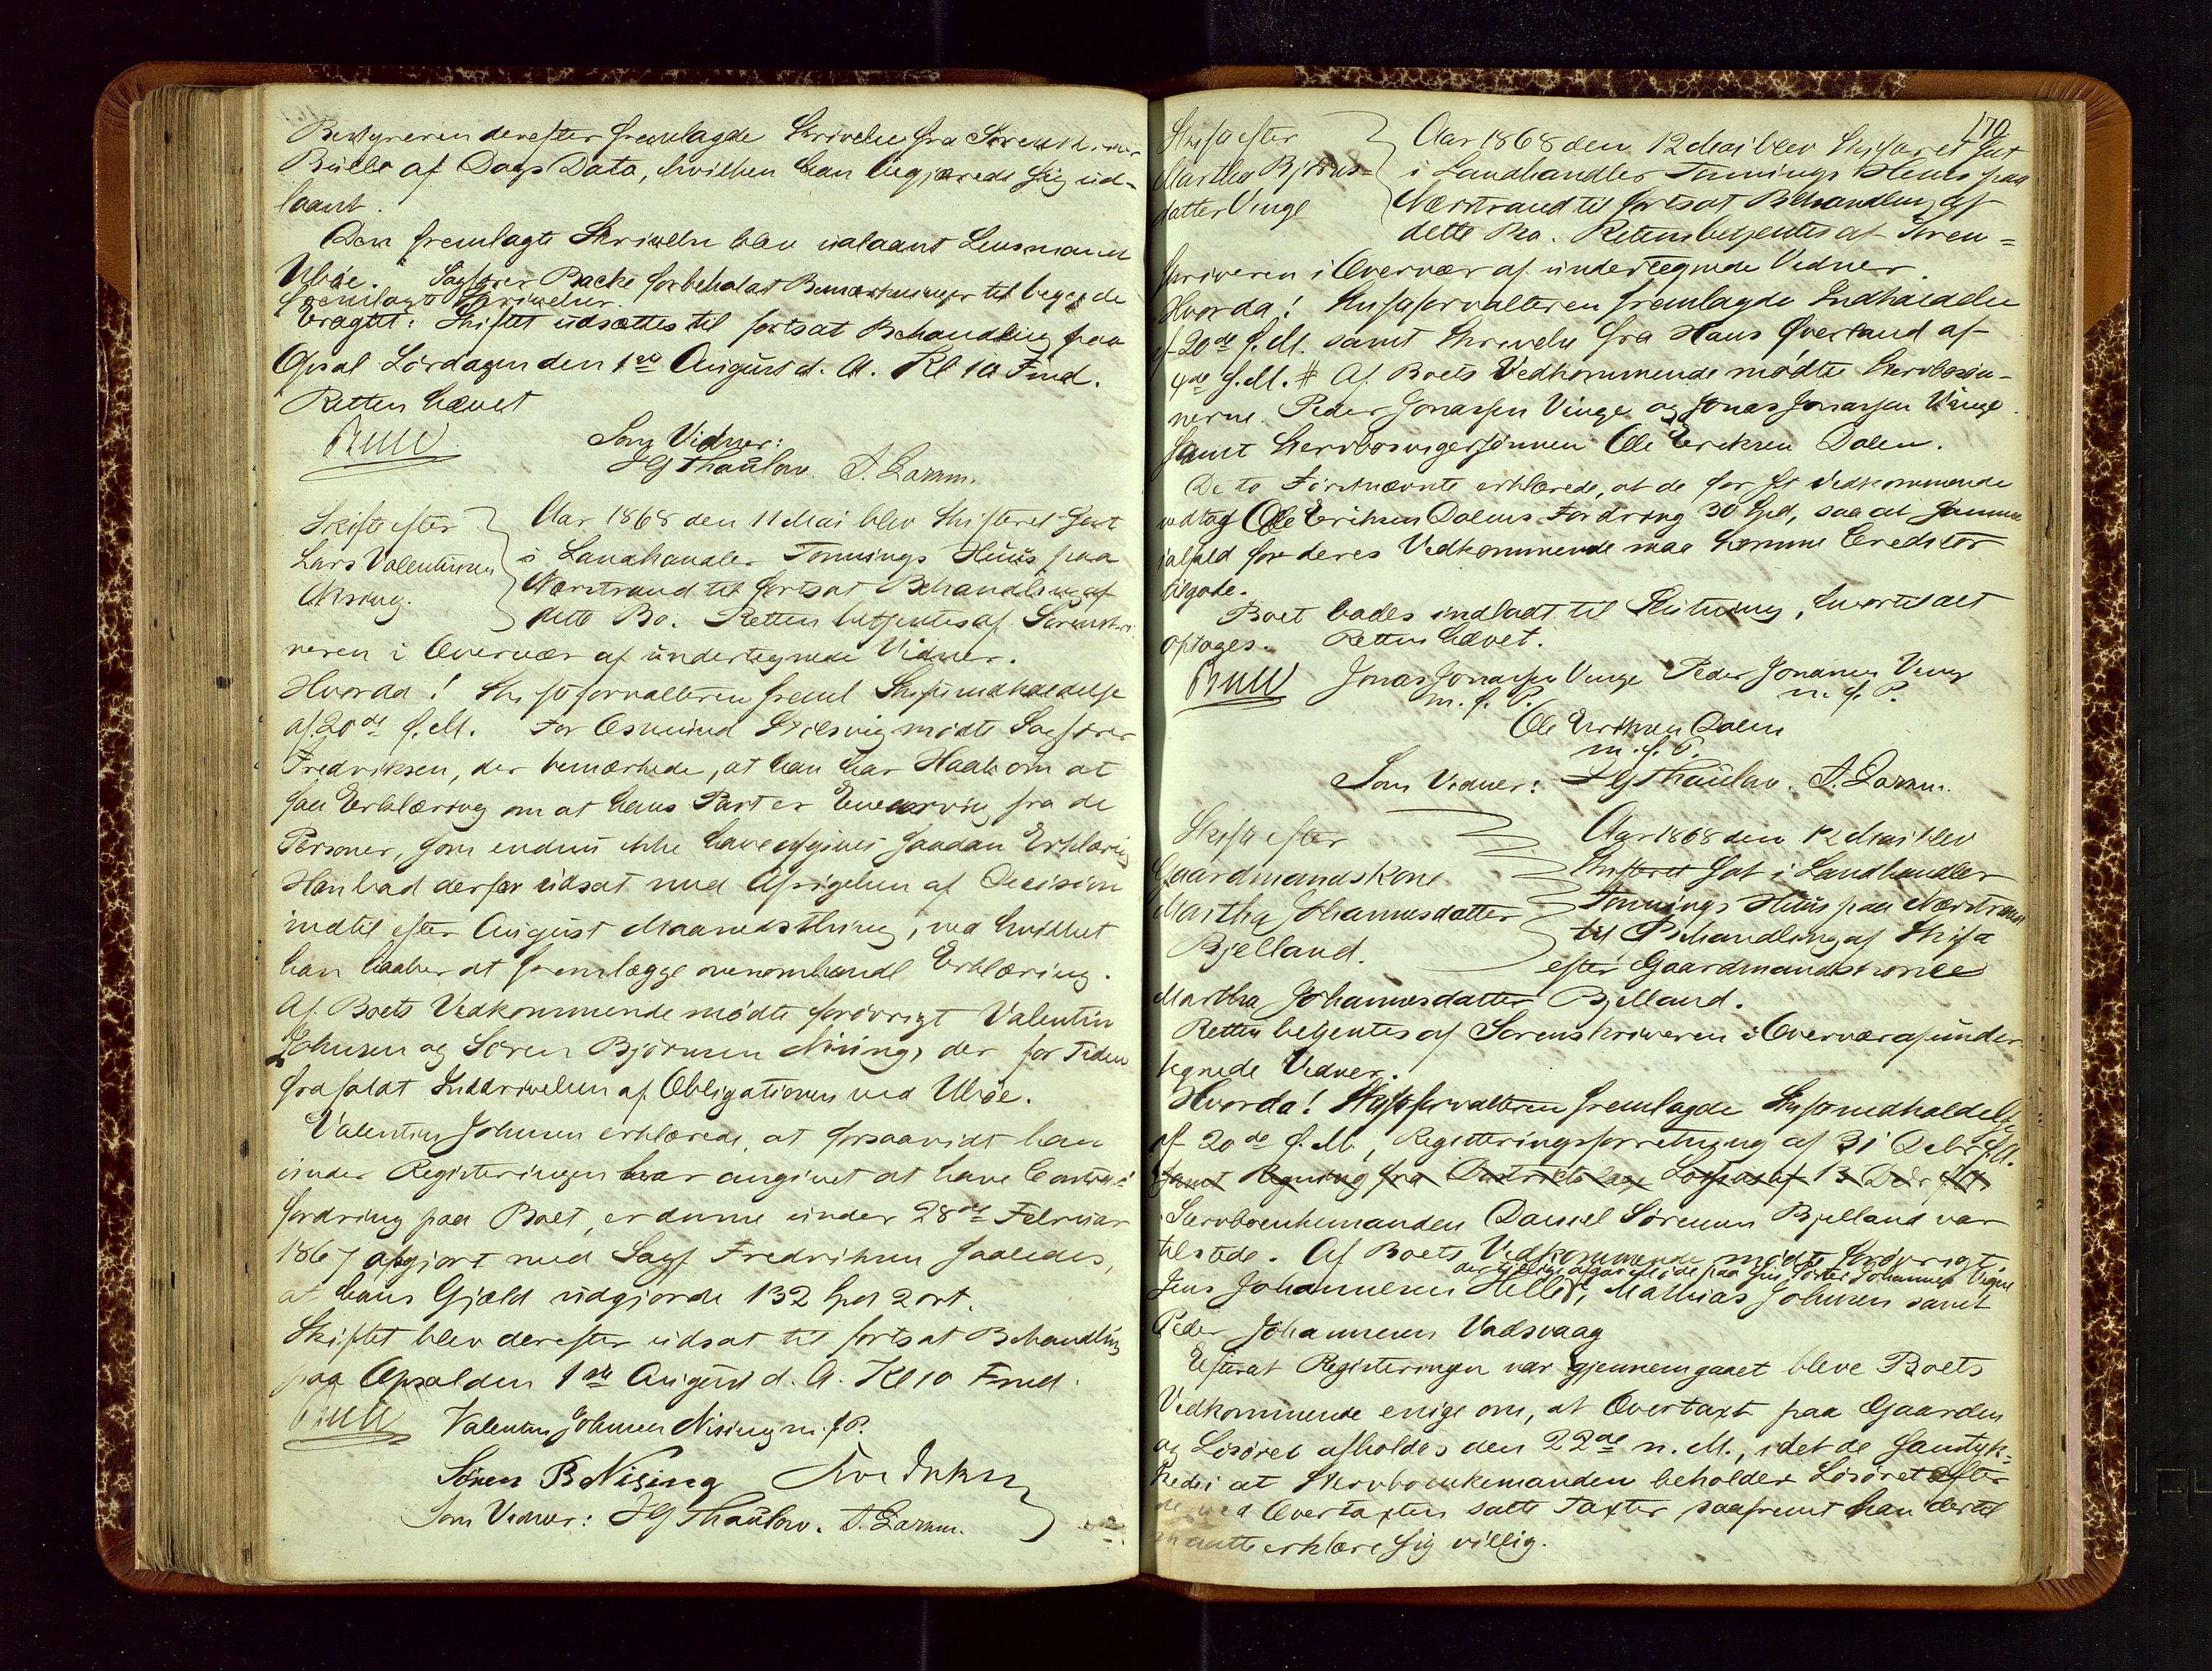 Bestyreren derefter fremlagde Skrivelse fra Sorenskriver
Bulls af Dags Dato, hvilken han begjærede sig ud-
laant.
Den fremlagte Skrivelse blev udlaant Lensmand
Ubøe. Sagfører Backe forbeholdt Bemærkninger til begge de
fremlagte Skrivelser.
Eragtet: Skiftet udsættes til fortsat Behandling paa
Opsal Lørdagen den 1ste August d. A. Kl 10 Fmd.
Retten hævet
Bull
Som Vidner:
HG Thaulow. A. Lamm.
Skifte efter
Lars Valentinsen
Nising.
Aar 1868 den 11 Mai blev Skifteret sat
i Landhandler Tonnings Huus paa
Nærstrand til fortsat Behandling af
dette Bo. Retten betjentes af Sorenskri
veren i Overvær af undertegnede Vidner.
Hvorda! Skifteforvalteren freml Skifteindkaldelse
af 20de f. M. For Osmund Stølsvig mødte Sagfører
Fredriksen, der bemærkede, at han har Haab om at
faa Erklæring om at hans Part er Enearving fra de
Personer, som endnu ikke have afgivet saadan Erklæring
Han bad derfor udsat med Afsigelsen af Decision
indtil efter August Maanedsthing, ved hvilket
han haaber at fremlægge ovenomhandl Erklæring.
Af Boets Vedkommende mødte forøvrigt Valentin
Johnsen og Søren Bjørnsen Nising, der for Tiden
frafaldt Inddrivelsen af Obligationen ved Ubøe.
Valentin Johnsen erklærede, at forsaavidt han
under Registeringen har angivet at have Contra-
fordring paa Boet, er denne under 28de Februar
1867 afgjort med Sagf Fredriksen saaledes,
at hans Gjæld udgjorde 132 Spd 2 ort.
Skiftet blev derefter udsat til fortsat Behandling
paa Opsal den 1ste August d. A. Kl 10 Fmd.
Bull
Valentin Johnsen Nising m. f. P.
Søren B Nising Fredriksen
Som Vidner: HG Thaulow. A. Lamm.
170
Skifte efter
Martha Bjørns-
datter Vinge
Aar 1868 den 12 Mai blev Skifteret sat
i Landhandler Tonnings Huus paa
Nærstrand til fortsat Behandling af
dette Bo. Retten betjentes af Soren=
skriveren i Overvær af undertegnede Vidner.
Hvorda! Skifteforvalteren fremlagde Indkaldelse
af 20de f. M. samt Skrivelse fra Hans Qverland af
4de f. M. # Af Boets Vedkommende mødte Stervbosøn-
nerne Peder Jonassen Vinge og Jonas Jonassen Vinge
samt Stervbosvigersønnen Ole Eriksen Dalen.
De to Førstnævnte erklærede, at de for sit Vedkommende
vedtog Ole Eriksen Dalens Fordring 30 Spd, saa at samme
ialfald for deres Vedkommende maa komme Creditor
tilgode.
Boet bades indladt til Slutning, hvortil det
optages. Retten hævet.
Bull Jonas Jonassen Vinge Peder Jonassen Vinge
m. f. P. m. f. P.
Ole Eriksen Dalen
m. f. P.
Som Vidner: HG Thaulow. A. Lamm.
Skifte efter
Gaardmandskone
Martha Johannesdatter
Bjelland.
Aar 1868 den 12 Mai blev
Skifteret sat i Landhandler
Tonnings Huus paa Nærstrand
til Behandling af Skifte
efter Gaardmandskone
Martha Johannesdatter Bjelland.
Retten betjentes af Sorenskriveren i Overvær af under
tegnede Vidner.
Hvorda! Skifteforvalteren fremlagde Skifteindkaldelse
af 20de f. M., Registeringsforretning af 31 Debr f. A.
samt Regning fra Districtslæge af 13 Debr f. A.
Stervboenkemanden Daniel Sørensen Bjelland var
tilstede. Af Boets Vedkommende mødte forøvrigt
der paa sin Søster Johannes
Jens Johannesen Helle, Mathias Johnsen samt
Peder Johannesen Vadsvaag
Efterat Registeringen var gjennemgaaet bleve Boets
Vedkommende enige om, at Overtaxt paa Gaarden
og Løsøret afholdes den 22de n. M., idet de samtyk-
kede i at Stervboenkemanden beholder Løsøret efter
de ved Overtaxten satte Taxter, saafremt han dertil
maatte erklære sig villig.